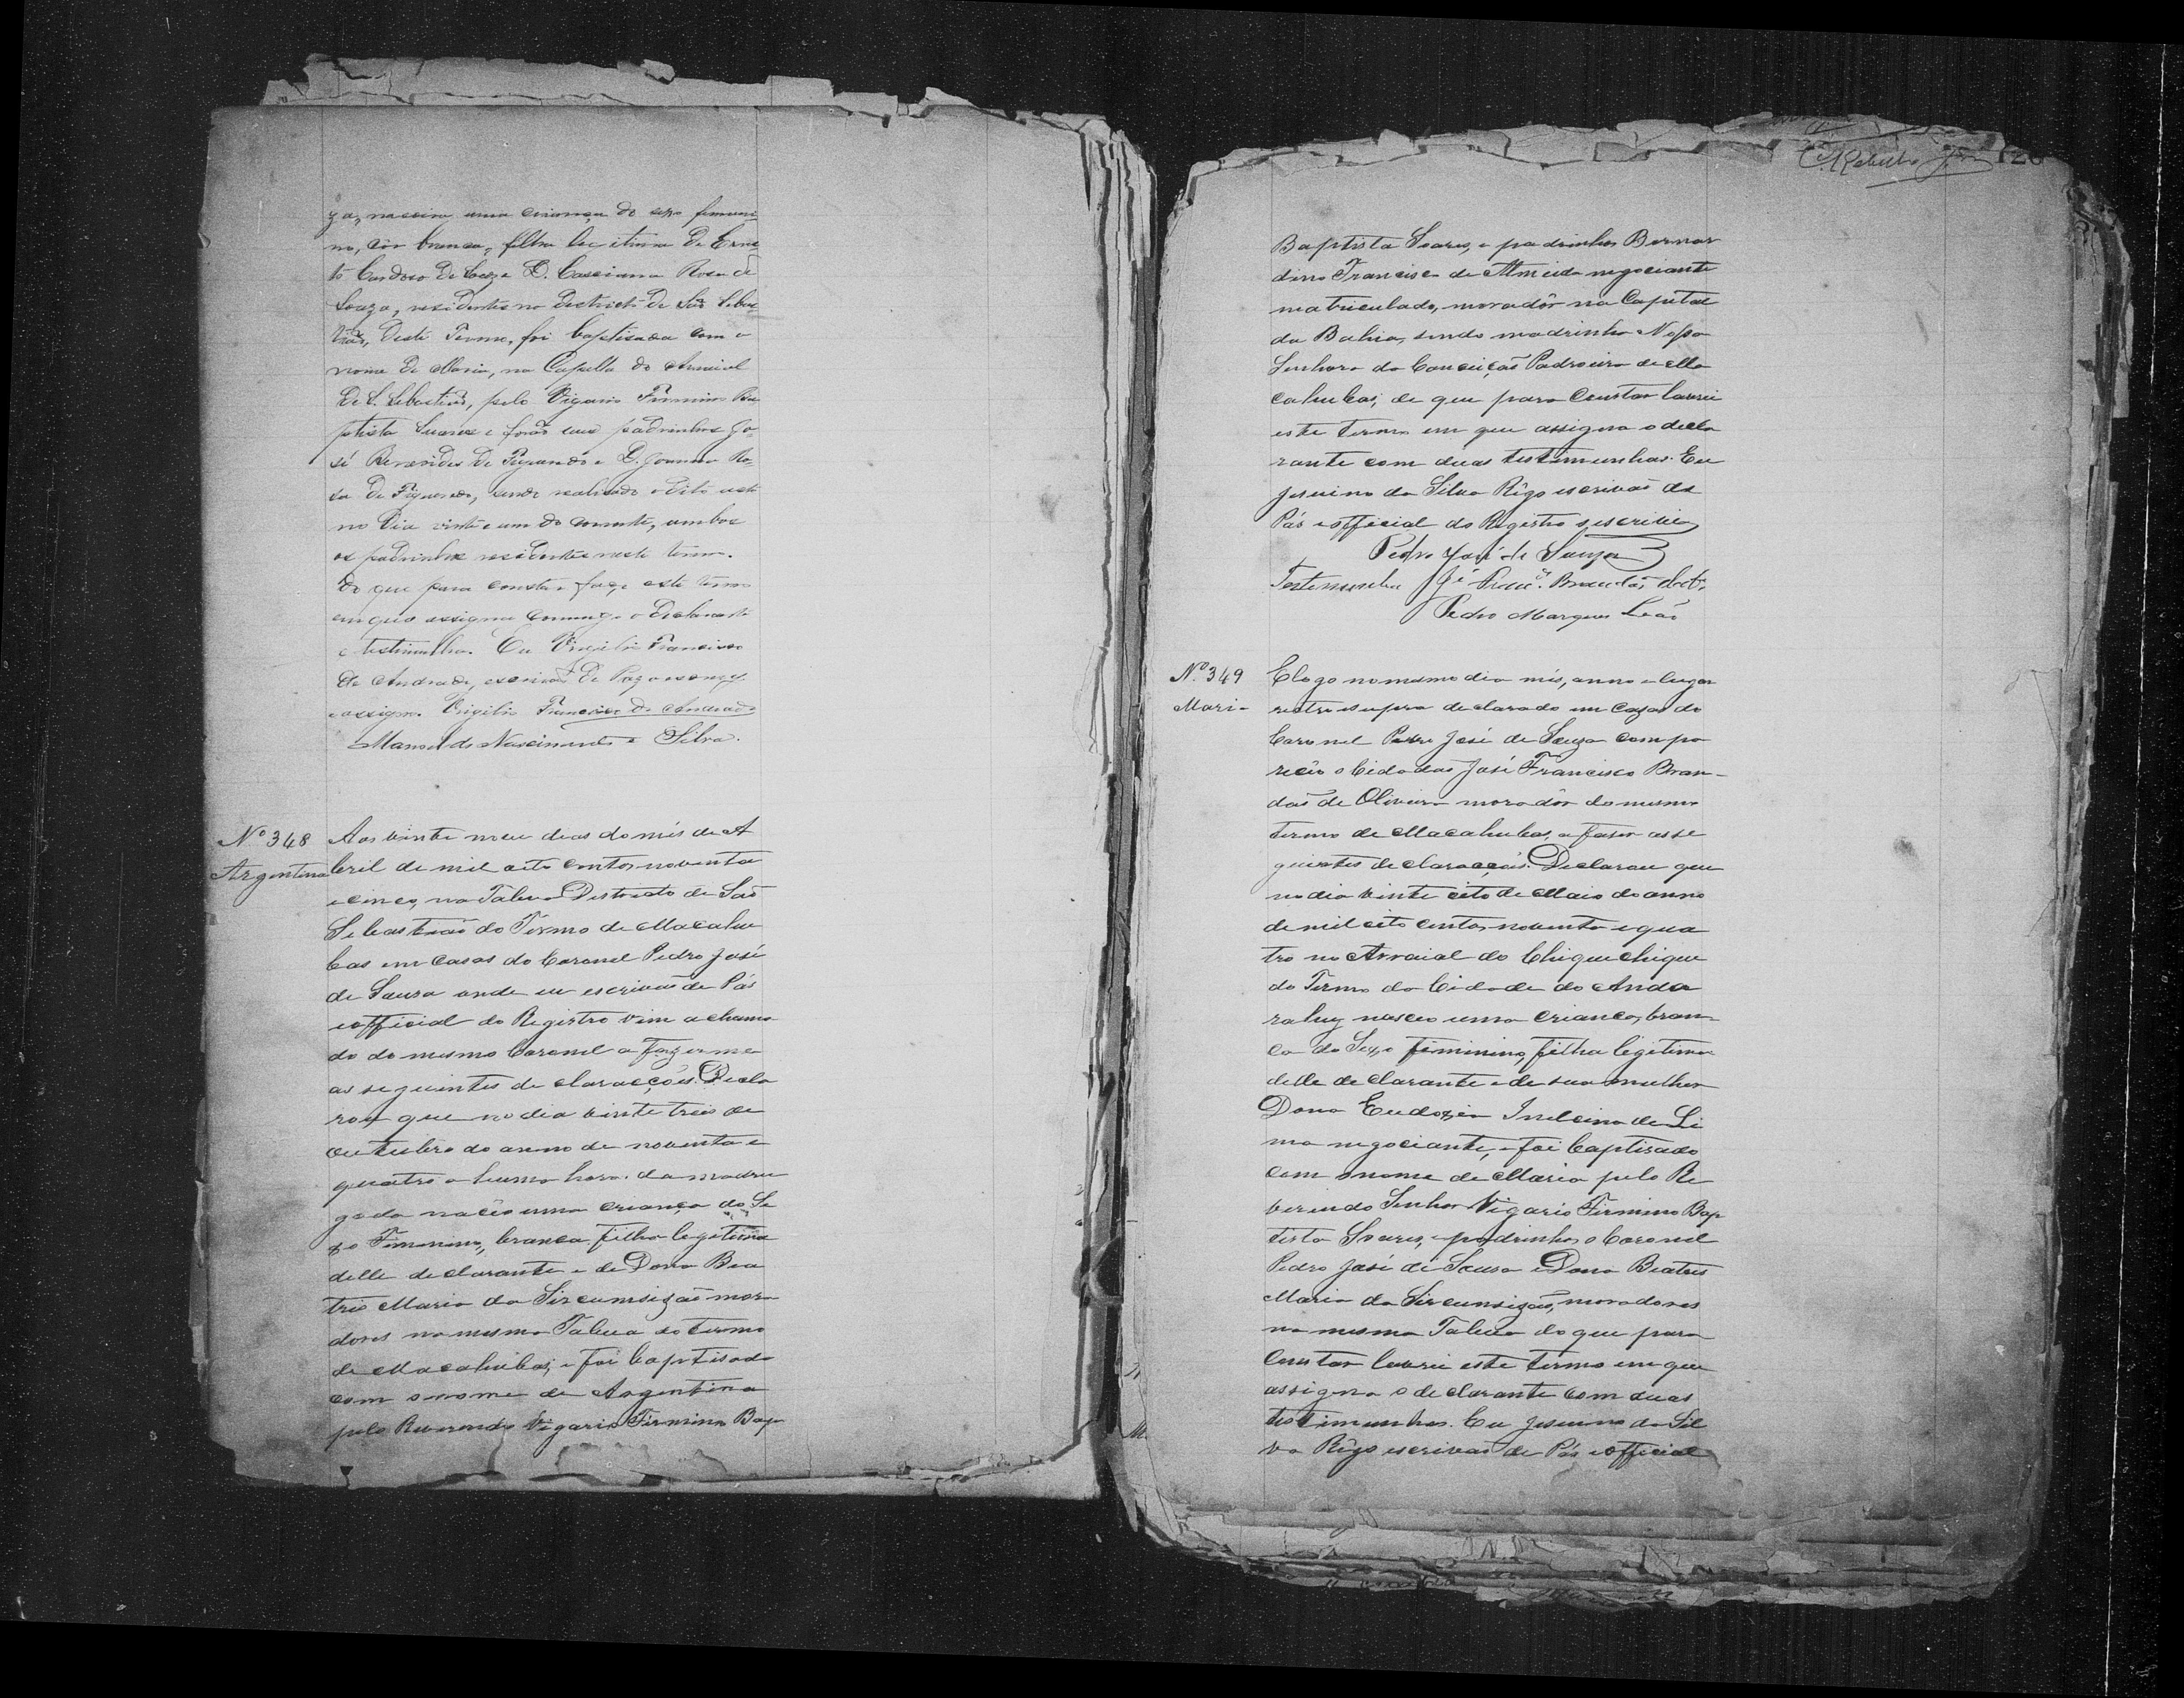 za, nasceu uma criança do sexo femeni
no, cor branca, filha legitima de Ernes
to Cardoso de Souza e D. Cassiana Rosa de
Souza, residentes no districto de São Sebas
tião, deste Termo, foi baptisada com o
nome de Maria, na Capella do Arraial
de S. Sebastião, pelo Vigario Firmino Ba
ptista Soares e forão seus padrinhos Jo-
sé de e D. Joanna Ro-
sa de Figueredo, sendo realisado o dito acto
no dia vinte e um do corrente, ambos
os padrinhos residentes neste termo.
Do que para constar faço este termo
em que assigna commigo o declarante
e testimunha. Eu Virgilio Francisco
de Andrade, escrivão de Paz o escrevy
e assigno. Virgilio Francisco de Andrade
Manoel do Nascimento e Silva.
Nº 348
Argentina
Aos vinte nove dias do mês de A
bril de mil oito centos noventa
e cinco, na Tabua Destricto de São
Sebastião do Termo de Macahu
bas em casas do Coronel Pedro José
de Souza onde eu escrivão de Pás
e official do Registro vim a chama
do do mesmo Coronel a fazer me
as seguintes declaracções. Decla
rou que no dia vinte treis de
Outubro do anno de noventa e
quatro a huma hora da madru
gada naceo uma criança do Se
xo Feminino, branca filha legitima
delle declarante e de Dona Bea
tris Maria da Sircumsizão mora
dores na mesma Tabua do termo
de Macahubas, e foi baptisada
com o nome de Argentina
pelo Reverendo Vigario Firmino Bap
128
Baptista Soares, e padrinhos Bernar
dino Francisco de Almeida negociante
matriculado, moradôr na Capital
da Bahia, sendo madrinha Nossa
Senhora da Conceição Padroeira de Ma
cahubas, de que para Constar lavrei
este termo em que assigna o decla
rante com duas testemunhas. Eu
Jesuino da Silva Rêgo escrivão de
Pás e official do Registro o escrivi
Pedro José de Souza
Testemunha Jé Franc.co Brandão
Pedro Marques Leão
Nº 349
Mari-
E logo no mesmo dia mês, anno e lugar
retro e supra declarado em Cazas do
Coronel Pedro José de Souza compa
receo o Cidadão José Francisco Bran-
dão de Oliveira moradôr do mesmo
termo de Macahubas, a faser as se
guintes declaracções. Declarou que
no dia vinte oito de Maio do anno
de mil oito centos noventa e qua
tro no Arraial do Chique chique
do Termo da Cidade do Anda
rahy nasceo uma Criança, bran
ca do Sexo Feminino, filha legitima
delle declarante e de sua mulher
Dona Eudozia Indcina de Li
ma negociante, e foi baptisado
com o nome de Maria pelo Re
verendo Senhor Vigario Firmino Bap
tista Soares, e padrinhos o Coronel
Pedro José de Sousa e Dona Beatris
Maria da Sircunsizão, moradores
na mesma Tabua do que para
Constar lavrei este termo em que
assigna o declarante com duas
testimunhas. Eu Jesuino da Sil
va Rêgo escrivão de Pás e official